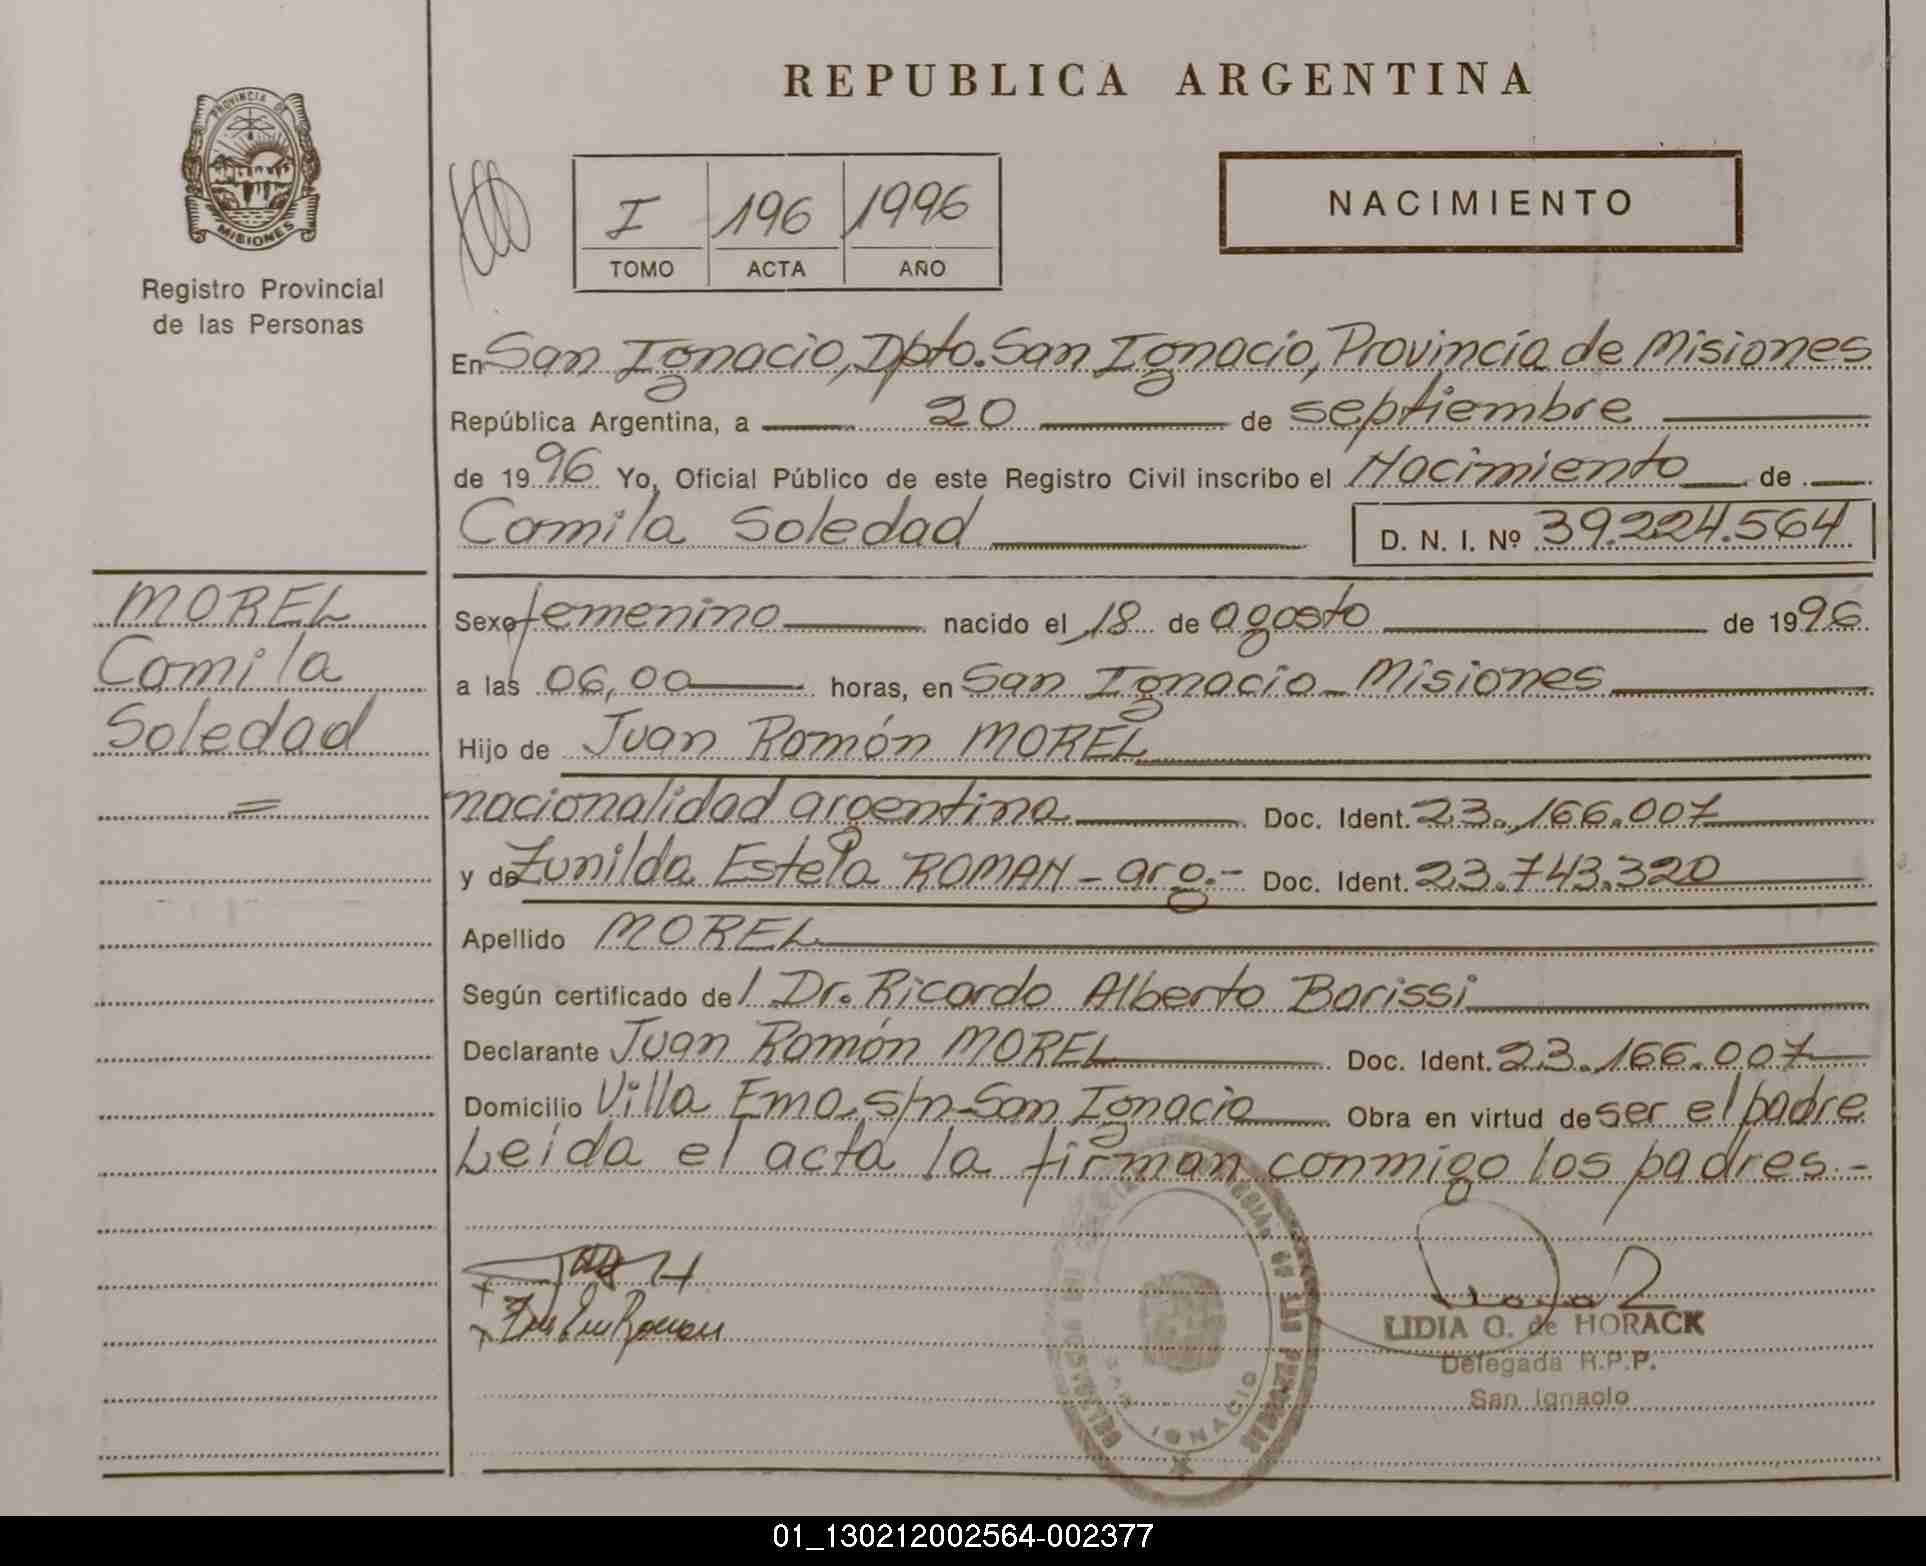 REPUBLICA ARGENTINA
PROVINCIA DE
MISIONES
Registro Provincial
de las Personas
I 196 1996
TOMO ACTA AÑO
NACIMIENTO
En San Ignacio, Dpto. San Ignacio, Provincia de Misiones
República Argentina, a 20 de septiembre
de 1996 Yo, Oficial Público de este Registro Civil inscribo el Nacimiento de
Camila Soledad D. N. I. Nº 39.224.564
MOREL
Camila
Soledad
Sexo femenino nacido el 18 de agosto de 1996
a las 06,00 horas, en San Ignacio - Misiones
Hijo de Juan Ramón MOREL
nacionalidad argentina Doc. Ident. 23.166.007
y de Zunilda Estela ROMAN - arg.- Doc. Ident. 23.743.320
Apellido MOREL
Según certificado del Dr. Ricardo Alberto Barissi
Declarante Juan Ramón MOREL Doc. Ident. 23.166.007
Domicilio Villa Ema s/n-San Ignacio Obra en virtud de ser el padre
Leida el acta la firman conmigo los padres.-
LIDIA O. de HORACK
Delegada R.P.P.
San Ignacio
SAN IGNACIO
01_130212002564-002377